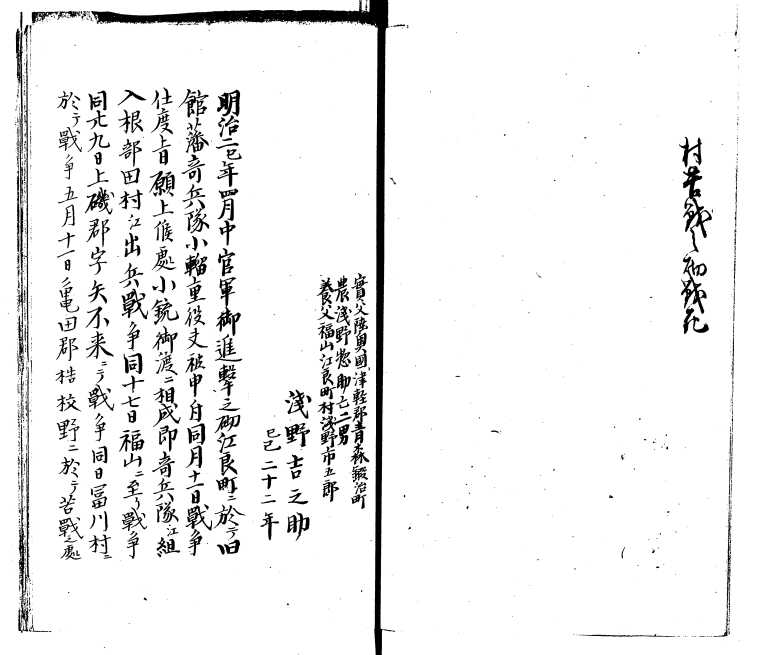 村苦戦之砌戦死
實父陸奥國津軽郡青森鍛治町
農浅野惣助亡二男
養父福山江良町村浅野市五郎
淺野吉之助
己巳二十二年
明治二巳年四月中官軍御進撃之砌江良町ニ於テ旧
館藩奇兵隊小輜重役夫被申付同月十一日戦争
仕度旨願上候處小銃御渡ニ相成即奇兵隊江組
入根部田村江出兵戰争同十七日福山ニ至リ戰争
同廿九日上磯郡字矢不来ニテ戰争同日冨川村ニ
於テ戰争五月十一日亀田郡桔梗野ニ於テ苦戰之處